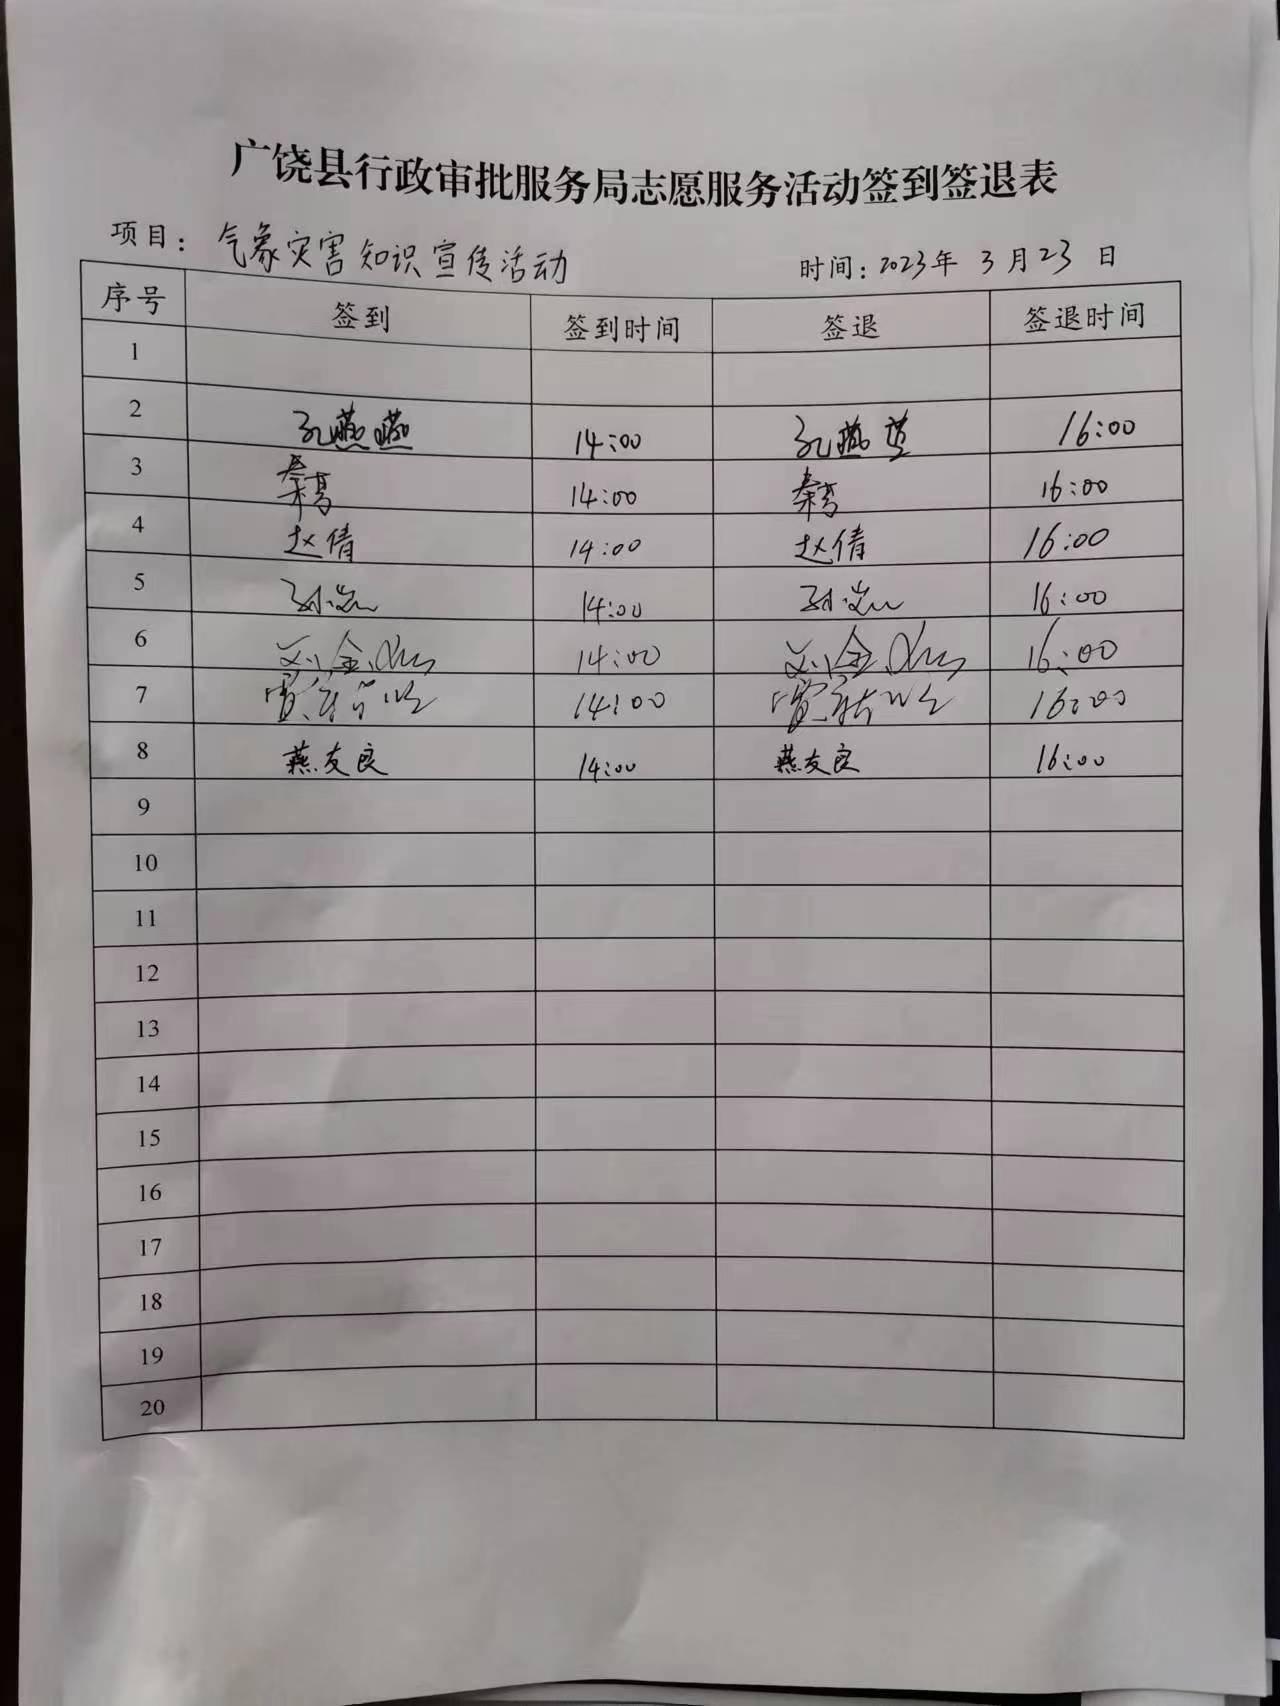 广饶县行政审批服务局志愿服务活动签到签退表
项目：气象灾害知识宣传活动 时间：2023年 3月23日
序号 签到 签到时间 签退 签退时间
1
2 孔燕燕 14:00 孔燕 16:00
3 秦 14:00 秦 16:00
4 赵倩 14:00 赵倩 16:00
5 孙 14:00 孙 16:00
6 刘金 14:00 刘金 16:00
7 贾 14:00 贾 16:00
8 燕友良 14:00 燕友良 16:00
9
10
11
12
13
14
15
16
17
18
19
20